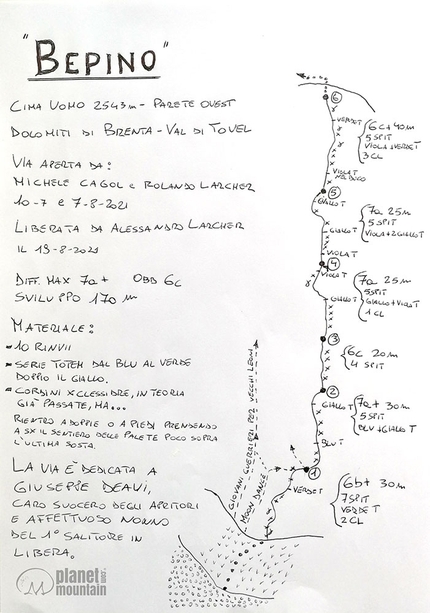 "BEPINO"
CIMA UOMO 2543m - PARETE OVEST
DOLOMITI DI BRENTA - VAL DI TOVEL
VIA APERTA DA:
MICHELE CAGOL e ROLANDO LARCHER
10-7 e 7-8-2021
LIBERATA DA ALESSANDRO LARCHER
IL 19-8-2021
DIFF. MAX 7a+ OBB 6c
SVILUPPO 170 m
MATERIALE:
- 10 RINVII
- SERIE TOTEM DAL BLU AL VERDE
DOPPIO IL GIALLO.
- CORDINI X CLESSIDRE, IN TEORIA
GIÀ PASSATE, MA...
RIENTRO A DOPPIE O A PIEDI PRENDENDO
A SX IL SENTIERO DELLE PALETE POCO SOPRA
L'ULTIMA SOSTA.
LA VIA È DEDICATA A
GIUSEPPE DEAVI,
CARO SUOCERO DEGLI APRITORI
E AFFETTUOSO NONNO
DEL 1° SALITORE IN
LIBERA.
6
VERDE T
6c+ 40m
5 SPIT
VIOLA+VERDE T
3 CL
VIOLA T
5
GIALLO T
7a 25m
5 SPIT
VIOLA+2GIALLO T
GIALLO T
VIOLA T
4
VIOLA T
7a 25m
5 SPIT
GIALLO+VIOLA T
1 CL
GIALLO T
3
6c 20m
4 SPIT
2
GIALLO T
7a+ 30m
5 SPIT
BLU+GIALLO T
BLU T
1
VERDE T
6b+ 30m
7 SPIT
VERDE T
2 CL
GIOVANI GUERRIERI PER VECCHI LEONI
MOON DANCE
planet
mountain
.com